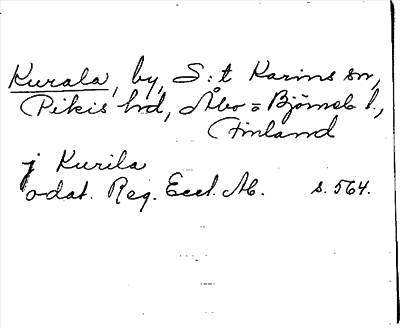 Kurala, by, S:t Karins sn,
Pikis hd, Åbo = Björneb l.,
Finland
j Kurila
odat. Reg. Eccl. Ab. s. 564.